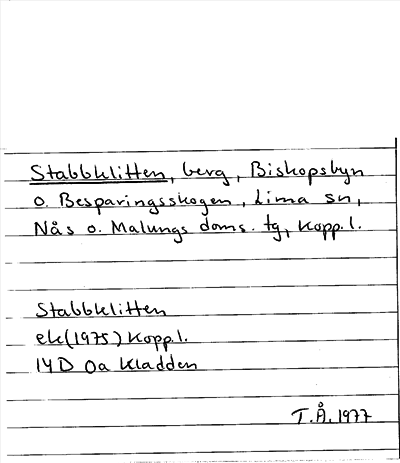 Stabbklitten, berg, Biskopsbyn
o. Besparingsskogen, Lima sn,
Nås o. Malungs doms. tg, Kopp.l.
Stabbklitten
ek(1975) Kopp.l.
14D 0a Kladden
T.Å. 1977